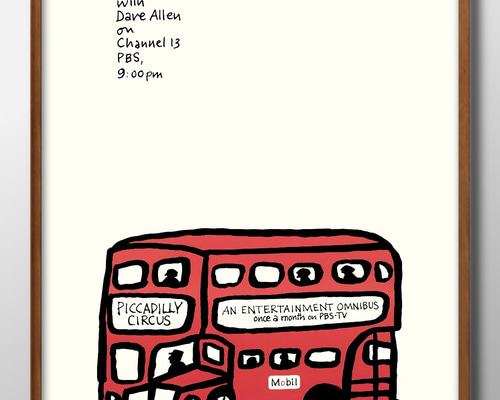 with
Dave Allen
on
Channel 13
PBS,
9:00pm
PICCADILLY
CIRCUS
AN ENTERTAINMENT OMNIBUS
once a month on PBS-TV
Mobil